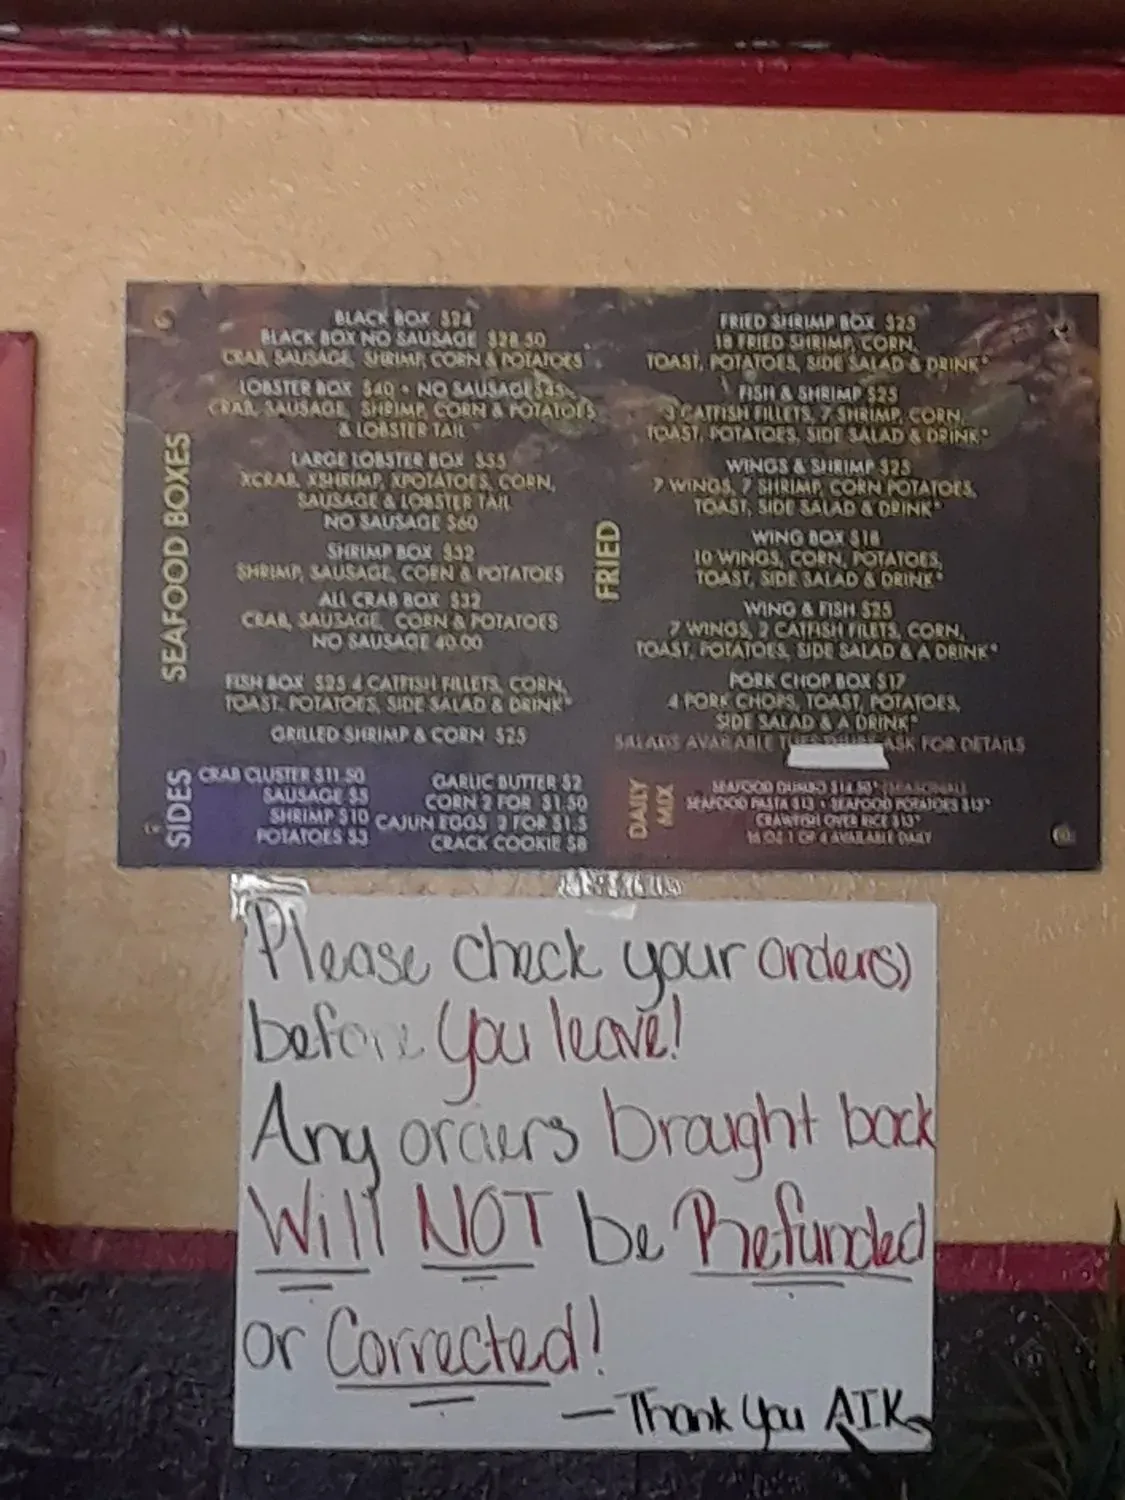 SEAFOOD BOXES
BLACK BOX $24
BLACK BOX NO SAUSAGE $28.50
CRAB, SAUSAGE, SHRIMP, CORN & POTATOES
LOBSTER BOX $40 • NO SAUSAGE $45
CRAB, SAUSAGE, SHRIMP, CORN & POTATOES
& LOBSTER TAIL
LARGE LOBSTER BOX $55
XCRAB, XSHRIMP, XPOTATOES, CORN,
SAUSAGE & LOBSTER TAIL
NO SAUSAGE $60
SHRIMP BOX $32
SHRIMP, SAUSAGE, CORN & POTATOES
ALL CRAB BOX $32
CRAB, SAUSAGE, CORN & POTATOES
NO SAUSAGE 40.00
FISH BOX $25 4 CATFISH FILLETS, CORN,
TOAST, POTATOES, SIDE SALAD & DRINK*
GRILLED SHRIMP & CORN $25
FRIED
FRIED SHRIMP BOX $25
18 FRIED SHRIMP, CORN,
TOAST, POTATOES, SIDE SALAD & DRINK*
FISH & SHRIMP $25
3 CATFISH FILLETS, 7 SHRIMP, CORN,
TOAST, POTATOES, SIDE SALAD & DRINK*
WINGS & SHRIMP $25
7 WINGS, 7 SHRIMP, CORN POTATOES,
TOAST, SIDE SALAD & DRINK*
WING BOX $18
10 WINGS, CORN, POTATOES,
TOAST, SIDE SALAD & DRINK*
WING & FISH $25
7 WINGS, 2 CATFISH FILETS, CORN,
TOAST, POTATOES, SIDE SALAD & A DRINK*
PORK CHOP BOX $17
4 PORK CHOPS, TOAST, POTATOES,
SIDE SALAD & A DRINK*
SALADS AVAILABLE ASK FOR DETAILS
SIDES
CRAB CLUSTER $11.50
SAUSAGE $5
SHRIMP $10
POTATOES $3
GARLIC BUTTER $2
CORN 2 FOR $1.50
CAJUN EGGS 2 FOR $1.5
CRACK COOKIE $8
DAILY
MIX
SEAFOOD GUMBO $14.50* (SEASONAL)
SEAFOOD PASTA $13 • SEAFOOD POTATOES $13*
CRAWFISH OVER RICE $13*
16 OZ 1 OF 4 AVAILABLE DAILY
Please check your order(s)
before you leave!
Any orders brought back
Will NOT be Refunded
or Corrected!
— Thank You AIK